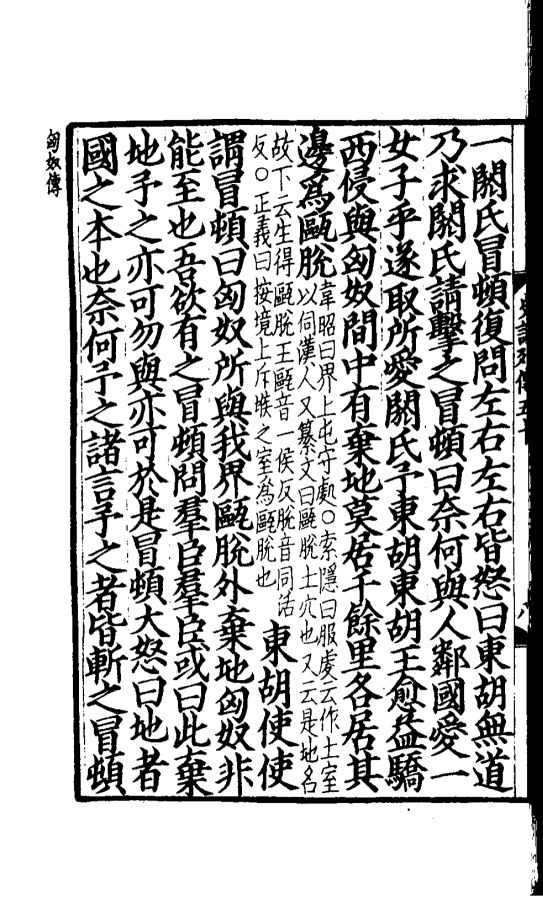 一閼氏冒頓復問左右左右皆怒曰東胡無道
乃求閼氏請擊之冒頓曰奈何與人鄰國愛一
女子乎遂取所愛閼氏予東胡東胡王愈益驕
西侵與匈奴間中有棄地莫居千餘里各居其
邊為甌脫
韋昭曰界上屯守處〇索隱曰服虔云作土室
以伺漢人又纂文曰甌脫土穴也又云是地名
故下云生得甌脫王甌音一侯反脫音同活
反〇正義曰按境上斥堠之室為甌脫也
東胡使使
謂冒頓曰匈奴所與我界甌脫外棄地匈奴非
能至也吾欲有之冒頓問羣臣羣臣或曰此棄
地予之亦可勿與亦可於是冒頓大怒曰地者
國之本也奈何予之諸言予之者皆斬之冒頓
匈奴傳